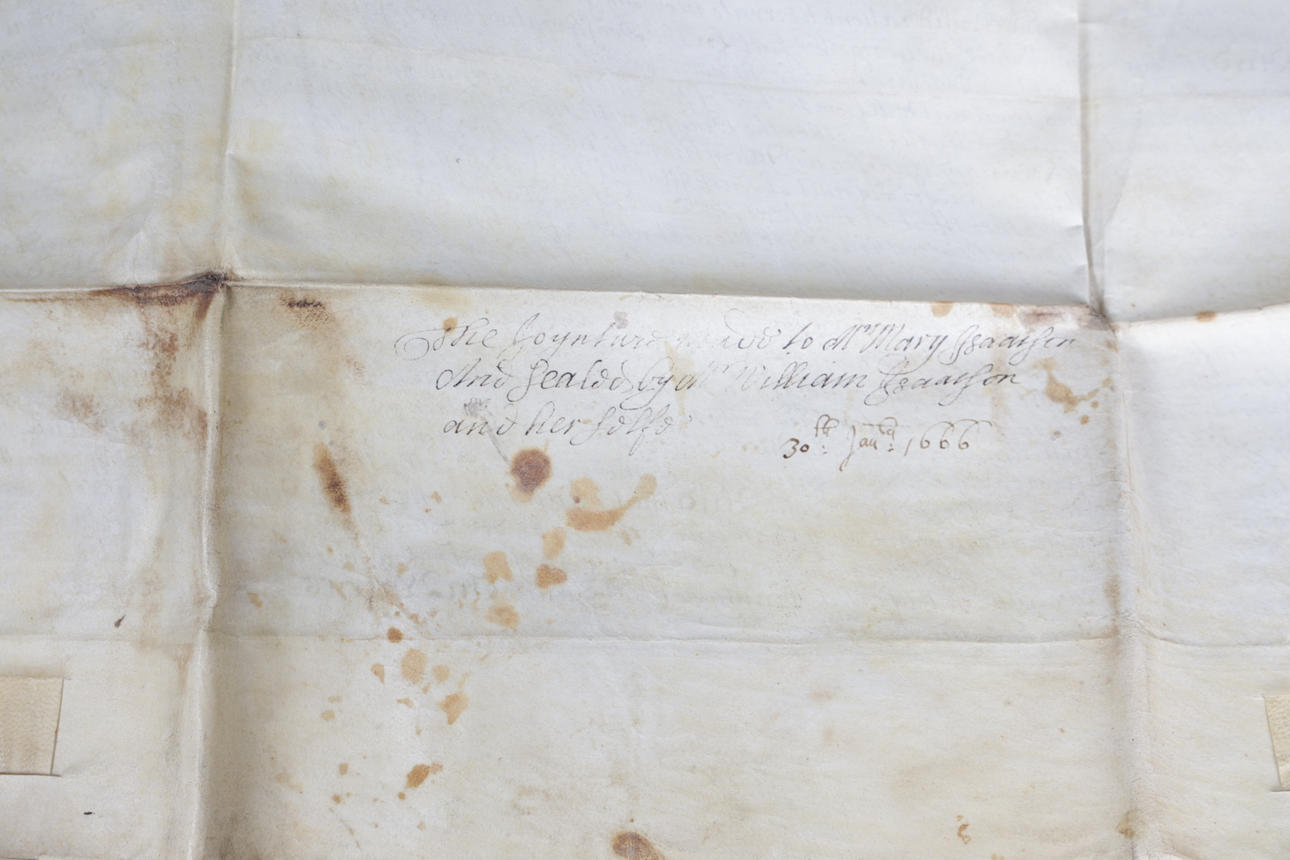 The Joynture made to Mrs Mary Isaacson
And Sealed by Mr William Isaacson
and her selfe
30th: Janry: 1666